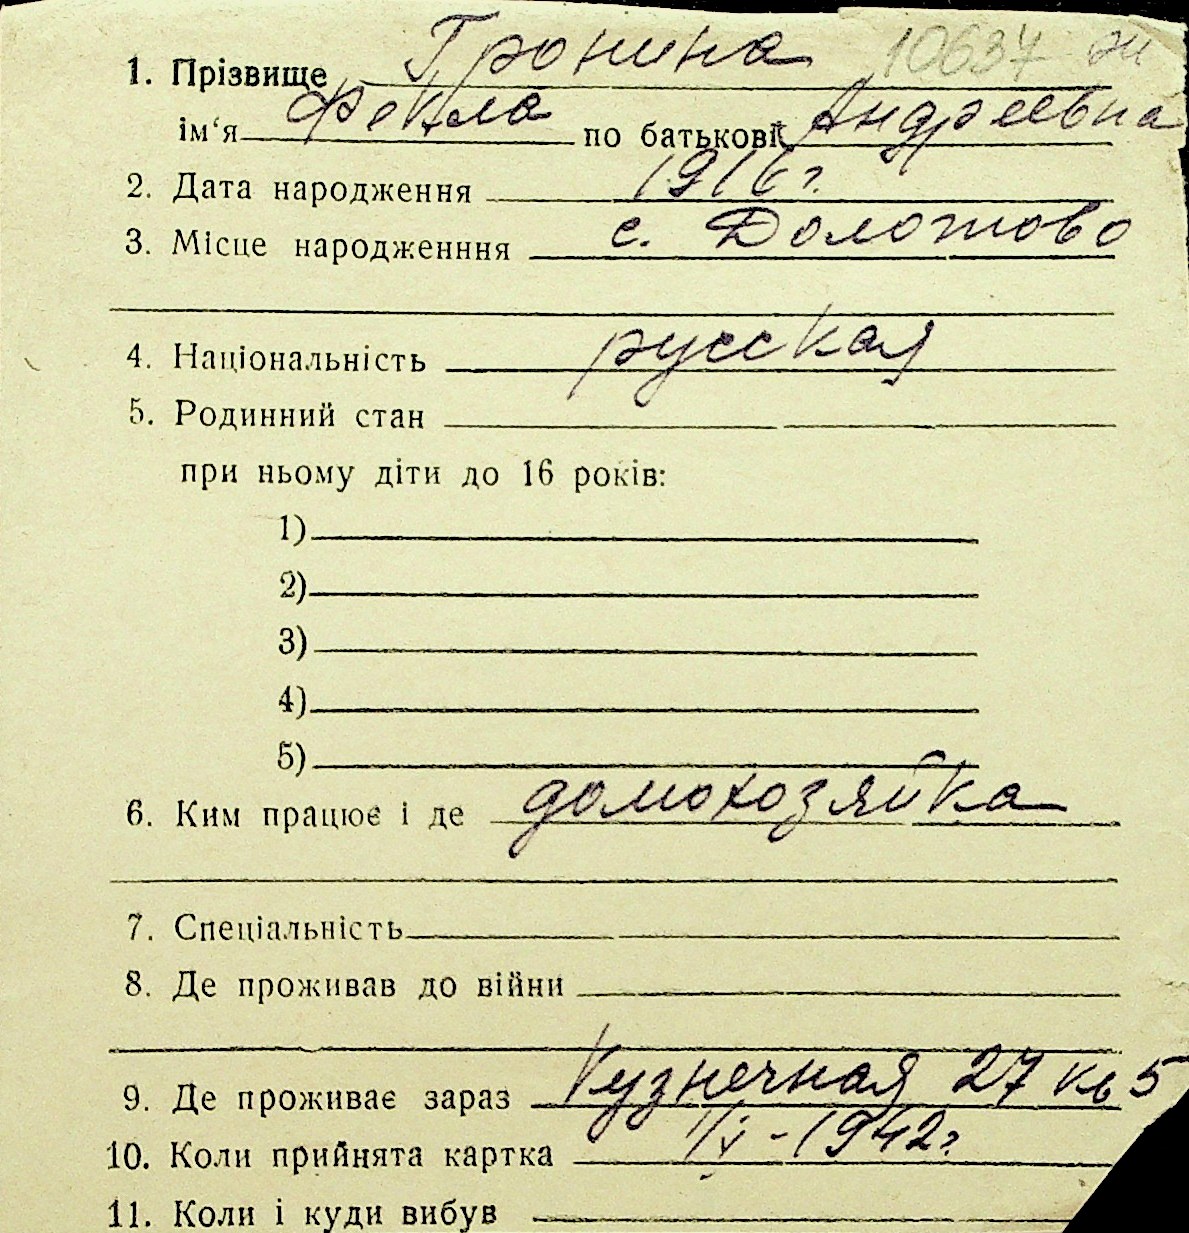 1. Прізвище Гронина 10637
ім‘я Фекла по батькові Андреевна
2. Дата народження 1916 г.
3. Місце народженння с. Долотово
4. Національність русская
5. Родинний стан
при ньому діти до 16 років:
1)
2)
3)
4)
5)
6. Ким працює і де домохозяйка
7. Спеціальність
8. Де проживав до війни
9. Де проживає зараз Кузнечная 27 кв 5
10. Коли прийнята картка 1/V - 1942 г.
11. Коли і куди вибув